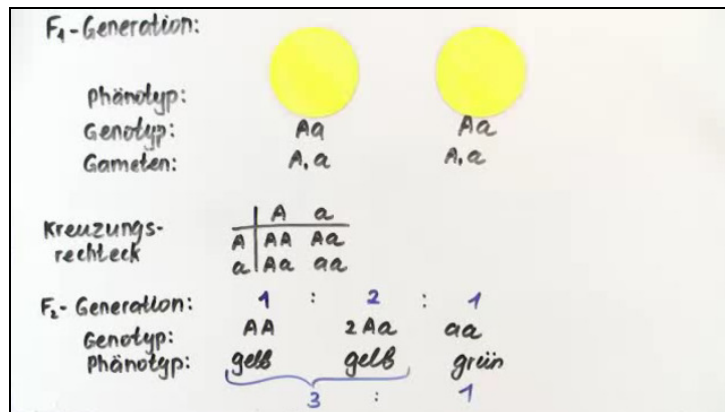 F₁-Generation:
Phänotyp:
Genotyp: Aa Aa
Gameten: A, a A, a
Kreuzungs-
rechteck
A a
A AA Aa
a Aa aa
F₂-Generation: 1 : 2 : 1
Genotyp: AA 2Aa aa
Phänotyp: gelb gelb grün
3 : 1